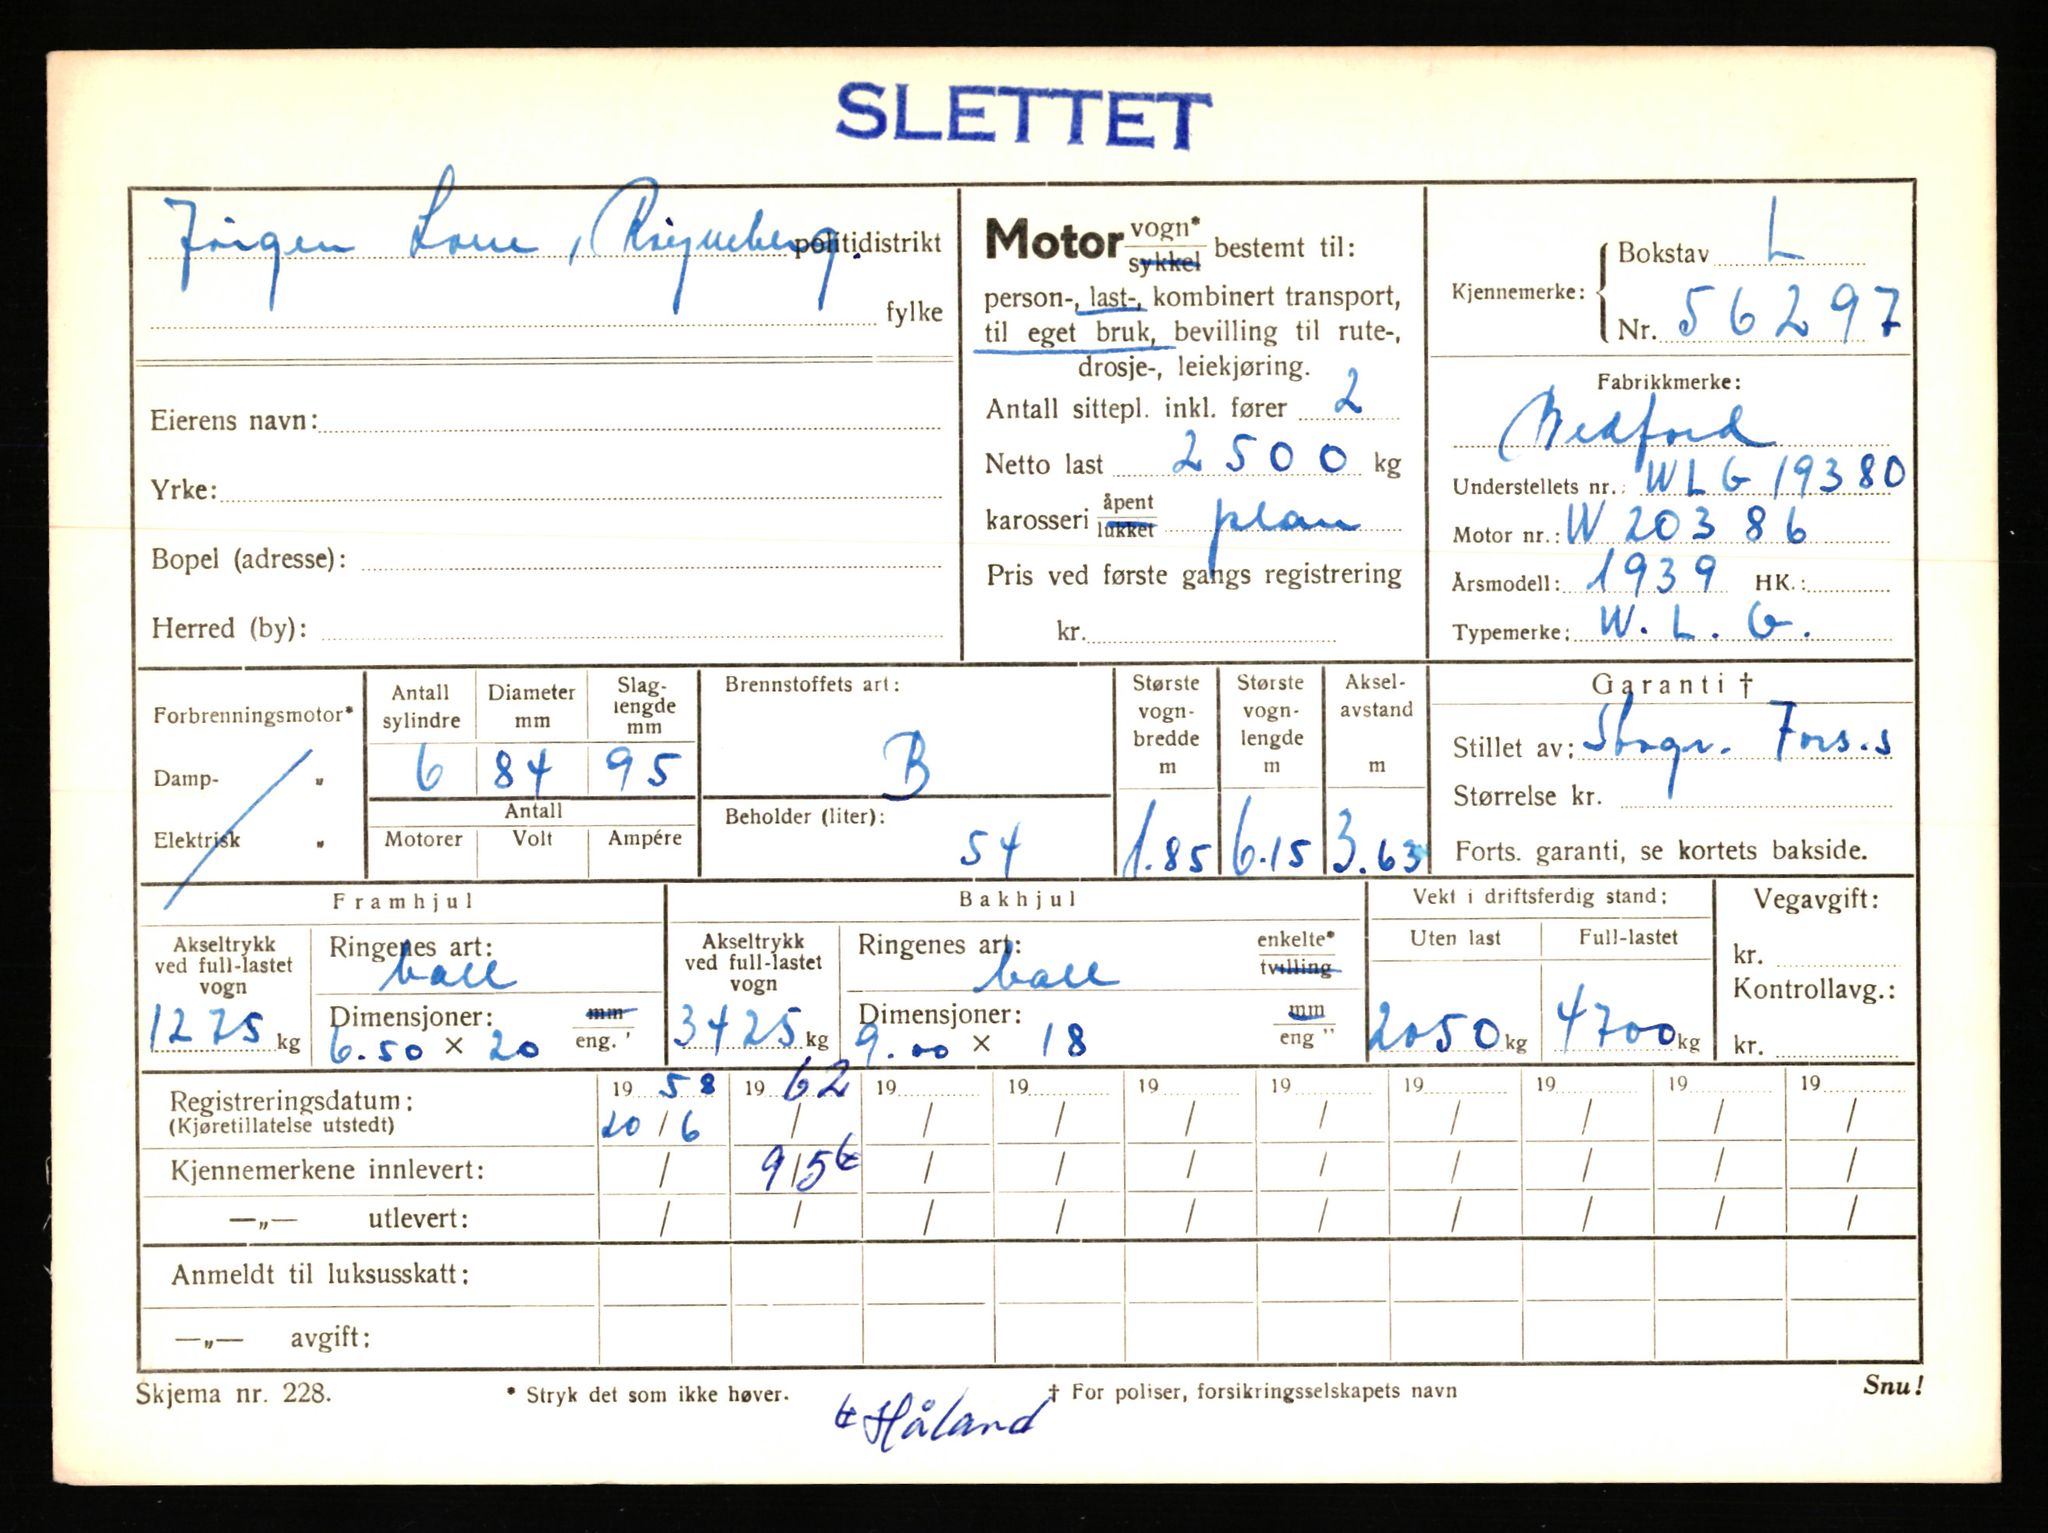 SLETTET
Jörgen politidistrikt
fylke
Eierens navn:
Yrke:
Bopel (adresse):
Herred (by):
Motor vogn* sykkel bestemt til:
person-, last-, kombinert transport,
til eget bruk, bevilling til rute-,
drosje-, leiekjøring.
Antall sittepl. inkl. fører 2
Netto last 2500 kg
karosseri åpent lukket plan
Pris ved første gangs registrering
kr.
Kjennemerke: Bokstav L
Nr. 56297
Fabrikkmerke:
Bedford
Understellets nr.: WLG 19380
Motor nr.: W 20386
Årsmodell: 1939 HK.:
Typemerke: W. L. G.
Forbrenningsmotor*
Damp- "
Elektrisk "
Antall sylindre
Diameter mm
Slag-lengde mm
6 84 95
Antall
Motorer Volt Ampére
Brennstoffets art:
B
Beholder (liter):
54
Største vogn-bredde m
1.85
Største vogn-lengde m
6.15
Aksel-avstand m
3.63
Garanti †
Stillet av:
Størrelse kr.
Forts. garanti, se kortets bakside.
Framhjul
Akseltrykk
ved full-lastet
vogn
1275 kg
Ringenes art:
ball
Dimensjoner: mm
6.50 × 20 eng. '
Bakhjul
Akseltrykk
ved full-lastet
vogn
3425 kg
Ringenes art: enkelte*
ball tvilling
Dimensjoner: mm
9.00 × 18 eng "
Vekt i driftsferdig stand:
Uten last Full-lastet
2050 kg 4700 kg
Vegavgift:
kr.
Kontrollavg.:
kr.
19 58 19 62 19 19 19 19 19 19 19 19
Registreringsdatum: 20/6 / / / / / / / / /
(Kjøretillatelse utstedt)
Kjennemerkene innlevert: / 9/5 / / / / / / / /
—„— utlevert: / / / / / / / / / /
Anmeldt til luksusskatt:
—„— avgift:
Skjema nr. 228. * Stryk det som ikke høver. † For poliser, forsikringsselskapets navn Snu!
Håland